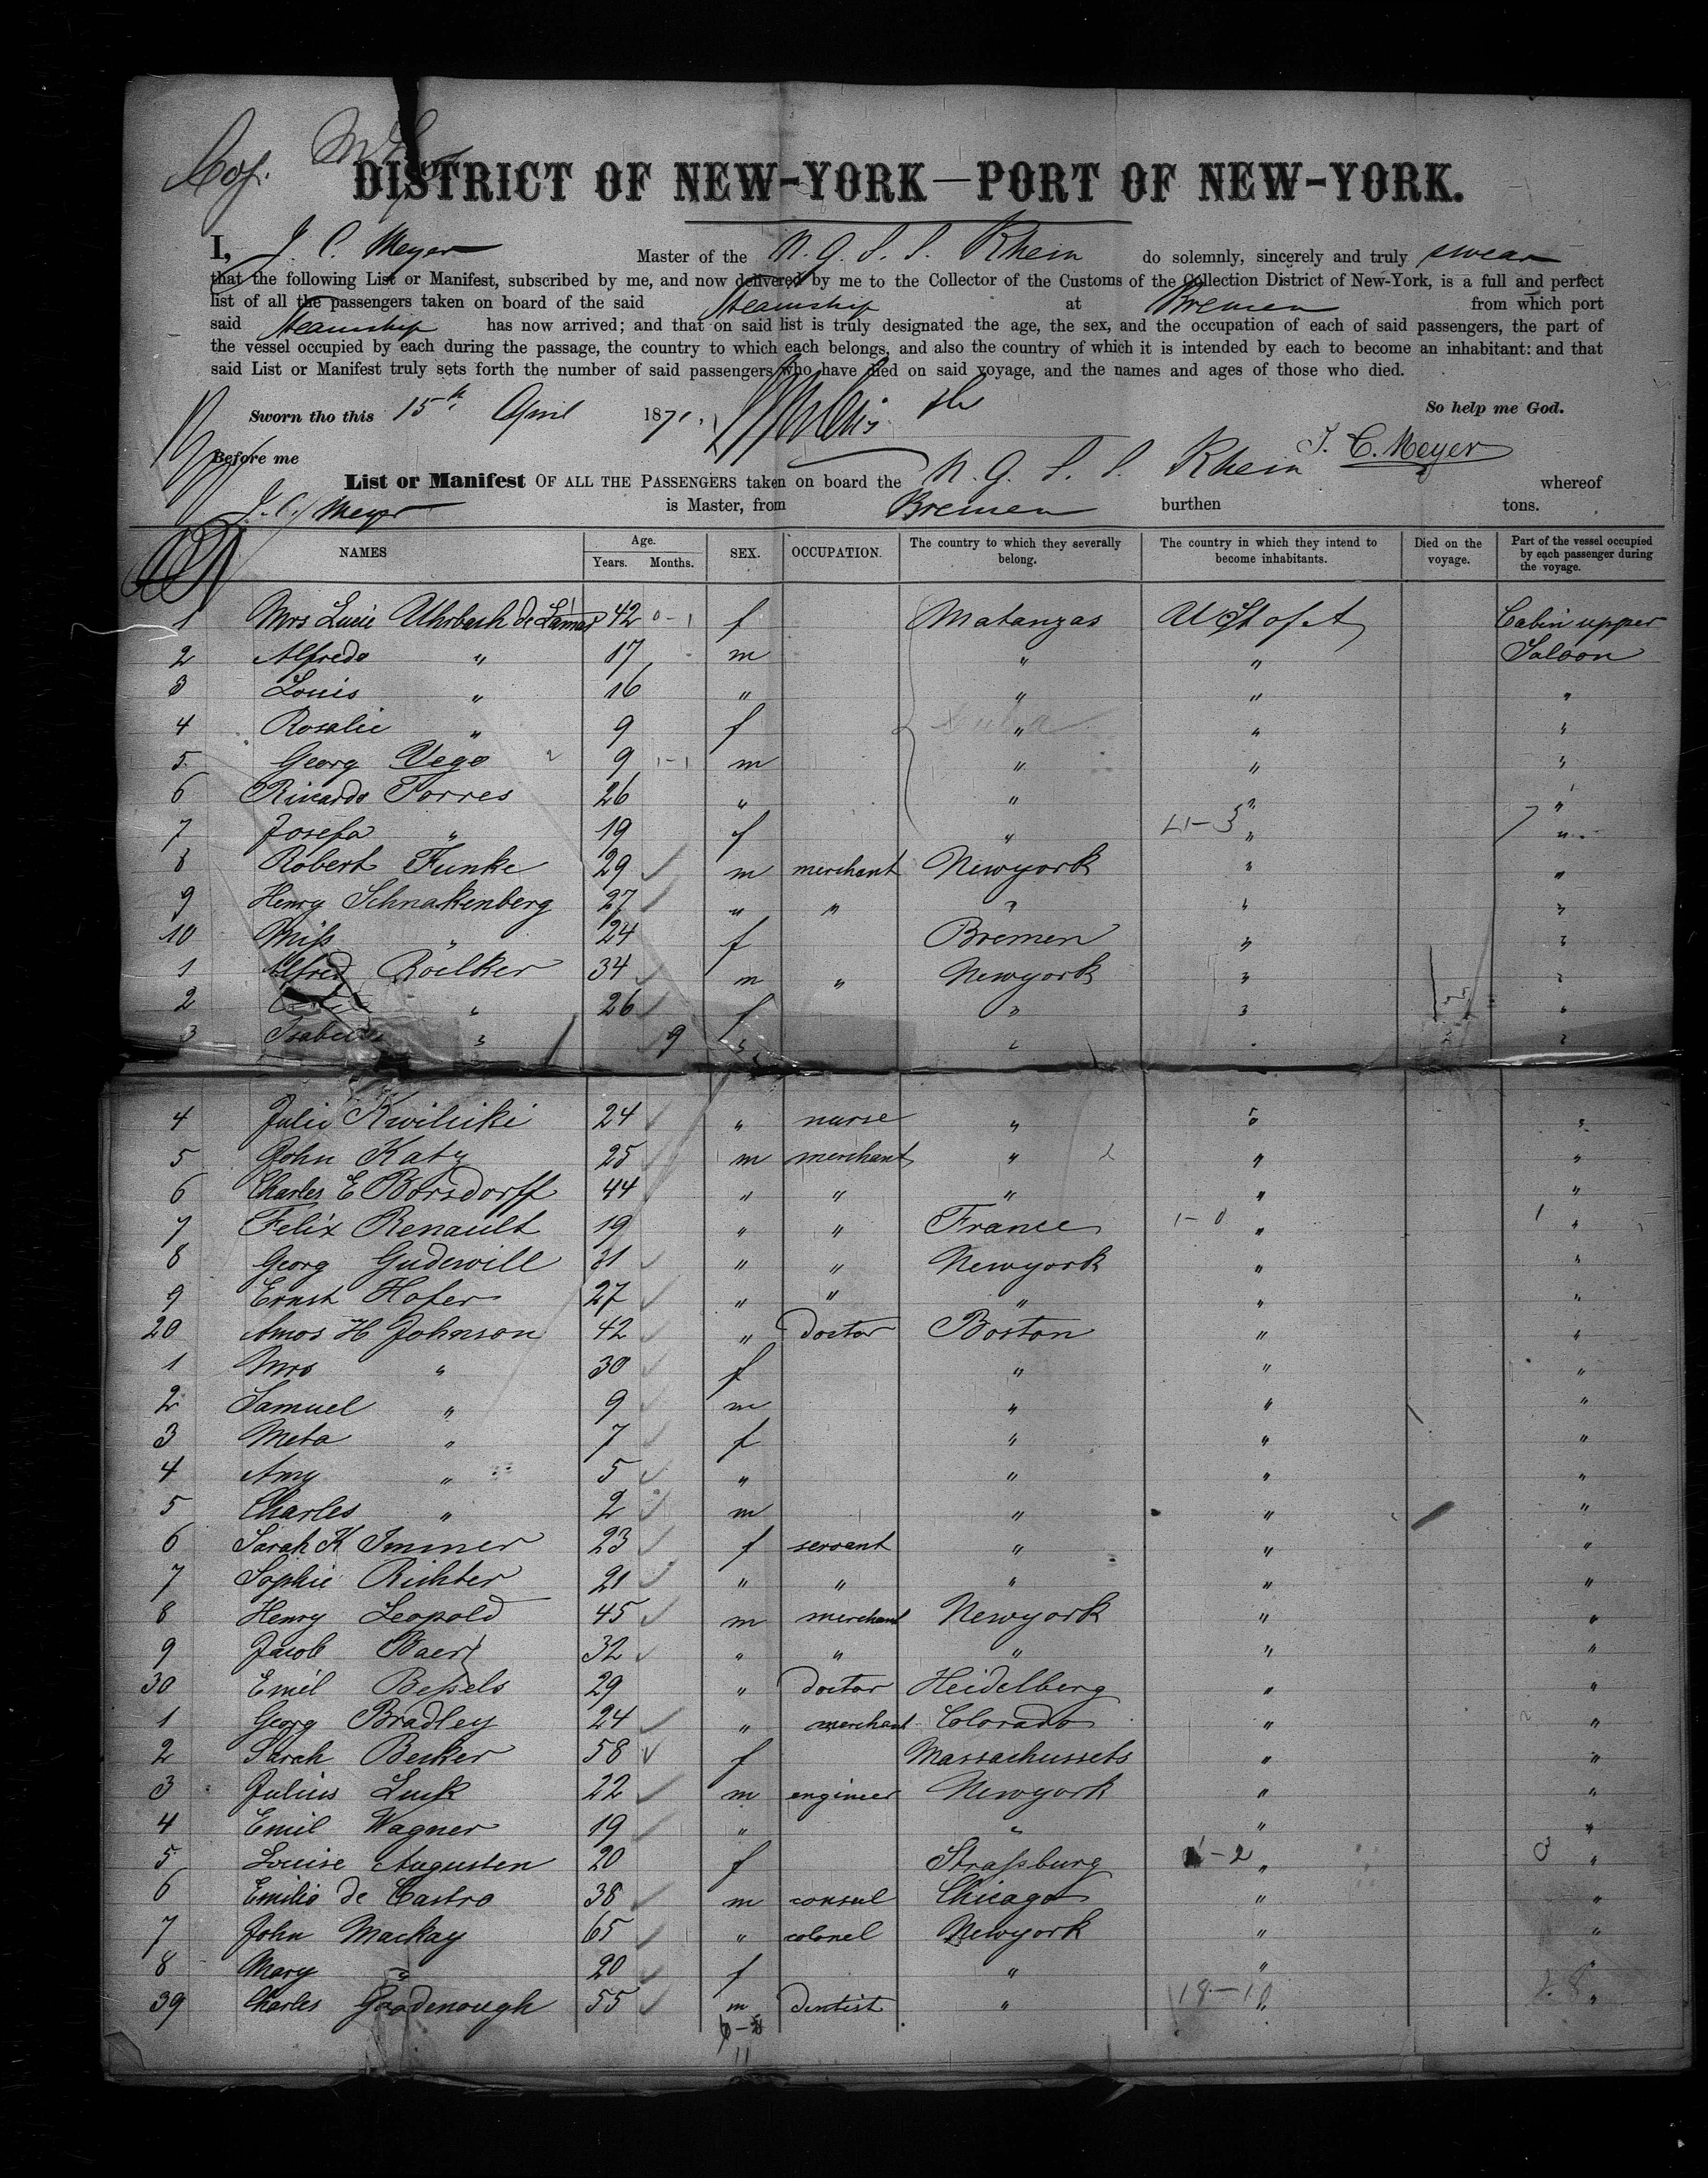 Cop.
DISTRICT OF NEW-YORK—PORT OF NEW-YORK.
I, J. C. Meyer Master of the N. G. S. S. Rhein do solemnly, sincerely and truly swear
that the following List or Manifest, subscribed by me, and now delivered by me to the Collector of the Customs of the Collection District of New-York, is a full and perfect
list of all the passengers taken on board of the said steamship at Bremen from which port
said steamship has now arrived; and that on said list is truly designated the age, the sex, and the occupation of each of said passengers, the part of
the vessel occupied by each during the passage, the country to which each belongs, and also the country of which it is intended by each to become an inhabitant: and that
said List or Manifest truly sets forth the number of said passengers who have died on said voyage, and the names and ages of those who died.
Sworn tho this 15th April 1871, So help me God.
Before me J. C. Meyer
List or Manifest OF ALL THE PASSENGERS taken on board the N. G. S. S. Rhein whereof
J. C. Meyer is Master, from Bremen burthen tons.
NAMES Age. Years. Months. SEX. OCCUPATION. The country to which they severally belong. The country in which they intend to become inhabitants. Died on the voyage. Part of the vessel occupied by each passenger during the voyage.
1 Mrs Lucie Uhrbach de Lamar 42 f Matanzas U St of A Cabin upper
2 Alfredo " 17 m " " Saloon
3 Louis " 16 " " " "
4 Rosalie " 9 f " " "
5 Georg Vega 9 m " " "
6 Ricardo Torres 26 " " " "
7 Josefa " 19 f " " "
8 Robert Funke 29 m merchant Newyork " "
9 Henry Schnakenberg 27 " " " " "
10 Miss " 24 f Bremen " "
1 Alfred Roelker 34 m " Newyork " "
2 " 26 f " " "
3 " 9 " " " "
4 Julie Kwilicki 24 " nurse " " "
5 John Katz 25 m merchant " " "
6 Charles E Borsdorff 44 " " " " "
7 Felix Renault 19 " " France " "
8 Georg Gudewill 31 " " Newyork " "
9 Ernst Hofer 27 " " " " "
20 Amos H Johnson 42 " doctor Boston " "
1 Mrs " 30 f " " "
2 Samuel " 9 m " " "
3 Meta " 7 f " " "
4 Amy " 5 " " " "
5 Charles " 2 m " " "
6 Sarah K 23 f servant " " "
7 Sophie Richter 21 " " " " "
8 Henry Leopold 45 m merchant Newyork " "
9 Jacob Baer 32 " " " " "
30 Emil Bessels 29 " doctor Heidelberg " "
1 Georg Bradley 24 " merchant Colorado " "
2 Sarah Becker 58 f Massachussets " "
3 Julius Luck 22 m engineer Newyork " "
4 Emil Wagner 19 " " " "
5 Louise Augusten 20 f Straßburg " "
6 Emilio de Castro 38 m consul Chicago " "
7 John Mackay 65 " colonel Newyork " "
8 Mary " 20 f " " "
39 Charles Goodenough 55 m dentist " " "